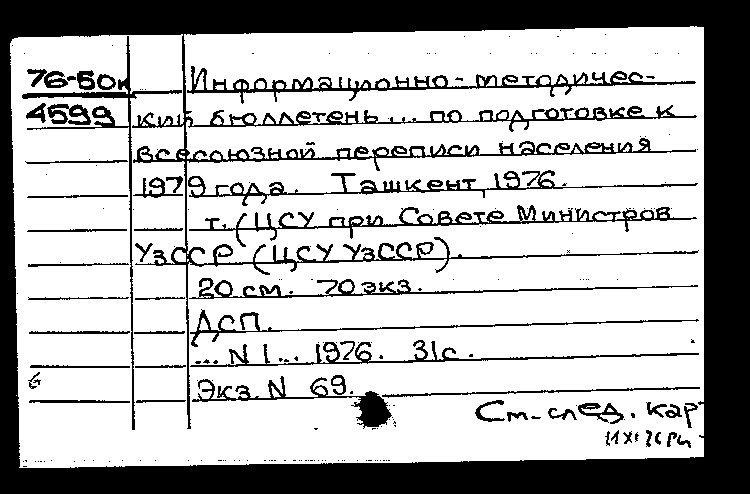 76-50к Информационно-методичес-
4599 кий бюллетень... по подготовке к
всесоюзной переписи населения
1979 года. Ташкент, 1976.
т. (ЦСУ при Совете Министров
УзССР (ЦСУ УзССР).
20 см. 70 экз.
ДСП.
... N 1... 1976. 31 с.
Экз. N 69.
См. след. кар